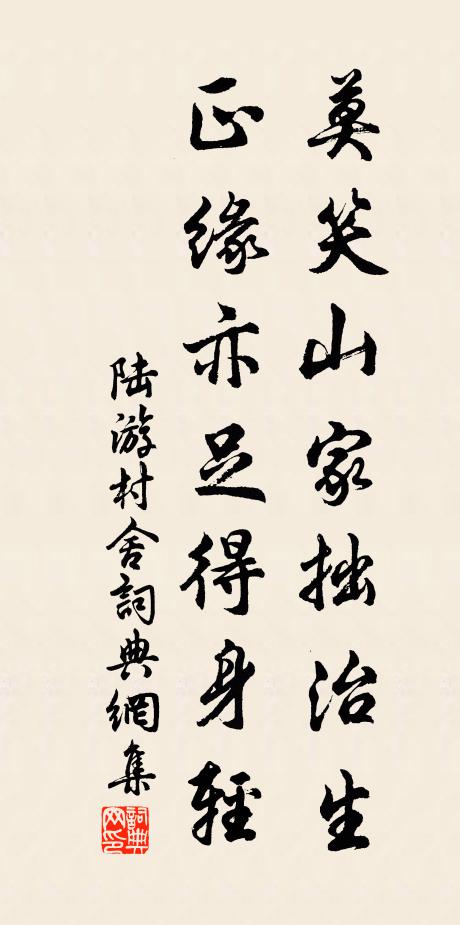 莫笑山家拙治生
正缘亦足得身輕
陆游村舍詞典網集
詞典网印